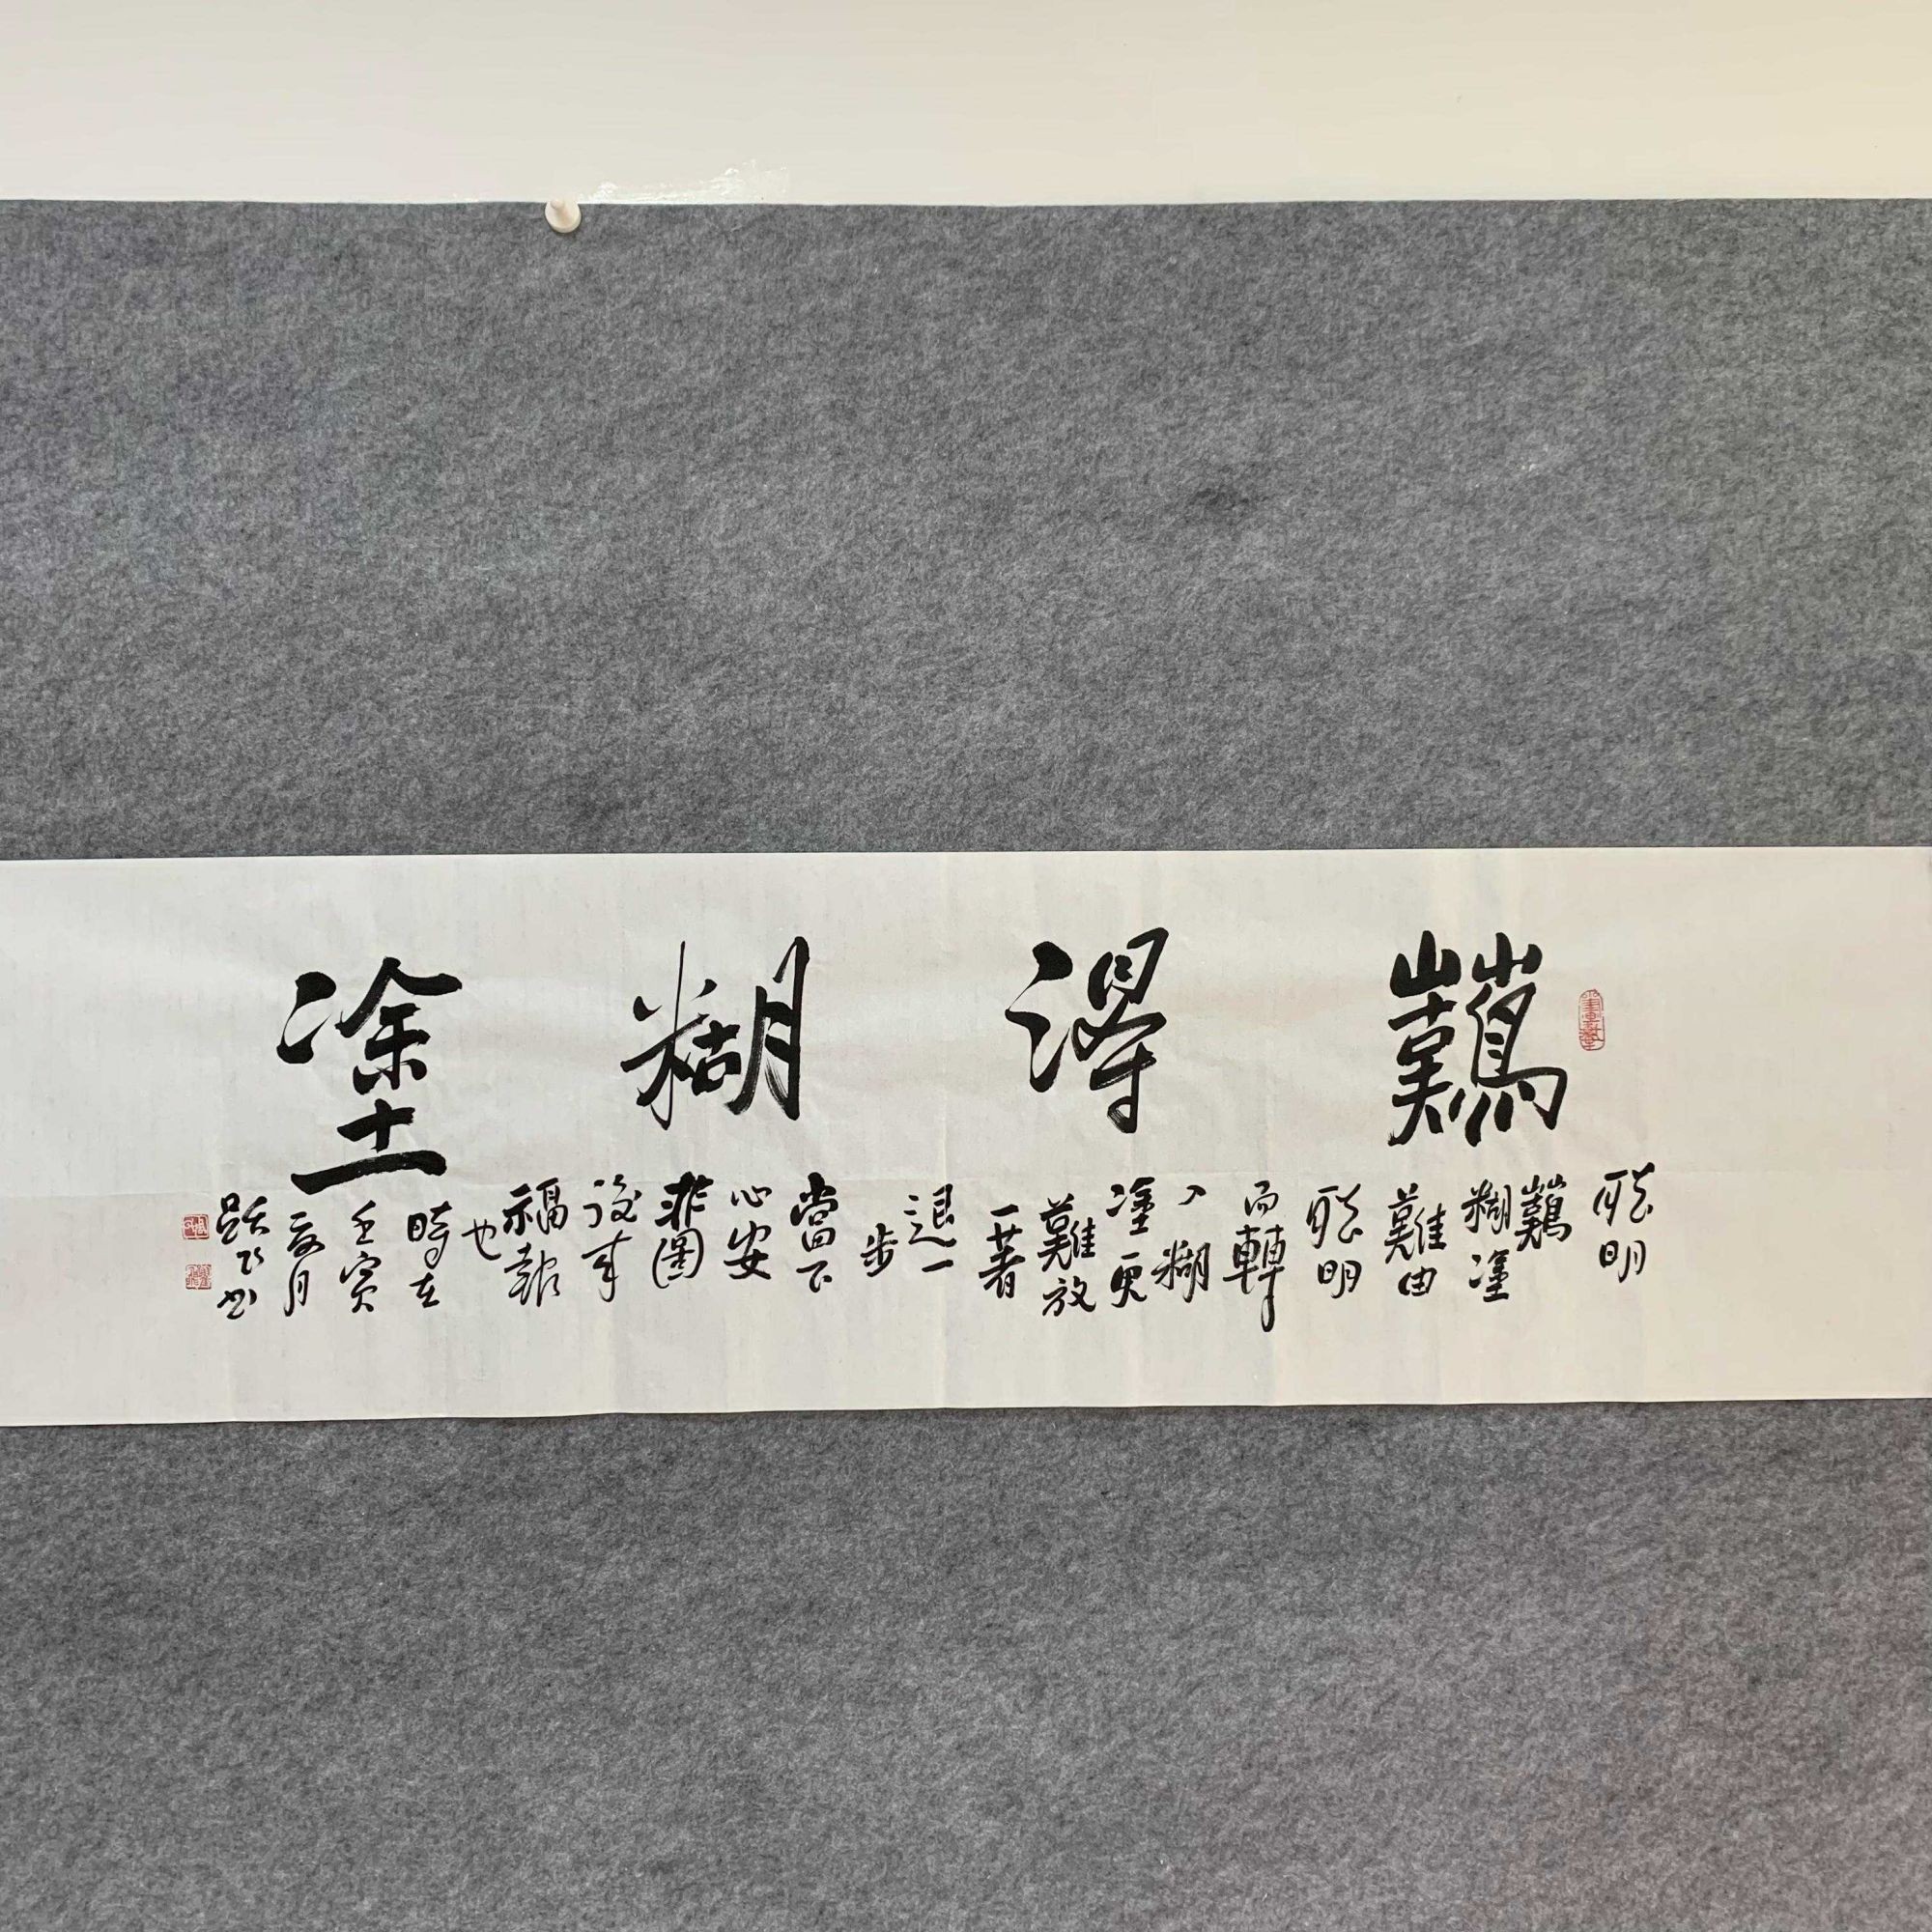 難得糊塗
聪明
難
糊塗
難由
聪明
而轉
入糊
塗更
難放
一著
退一
步
當下
心安
非圖
後來
福報
也
時在
壬寅
夏月
躍飞书